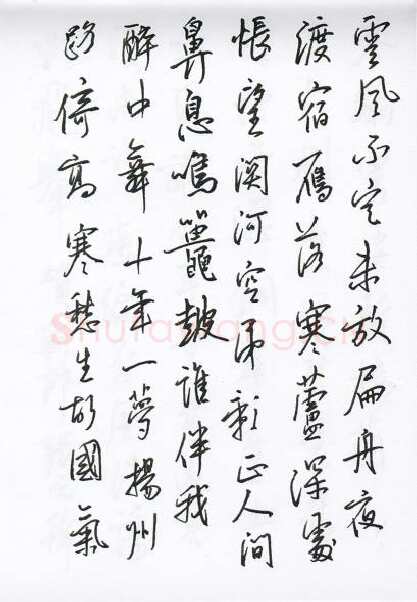 雲風不定未放扁舟夜
渡宿雁落寒蘆深處
悵望関河空吊影正人间
鼻息鳴鼉鼓誰伴我
醉中舞十年一夢揚州
路倚高寒愁生故國氣
Shufawang.CN